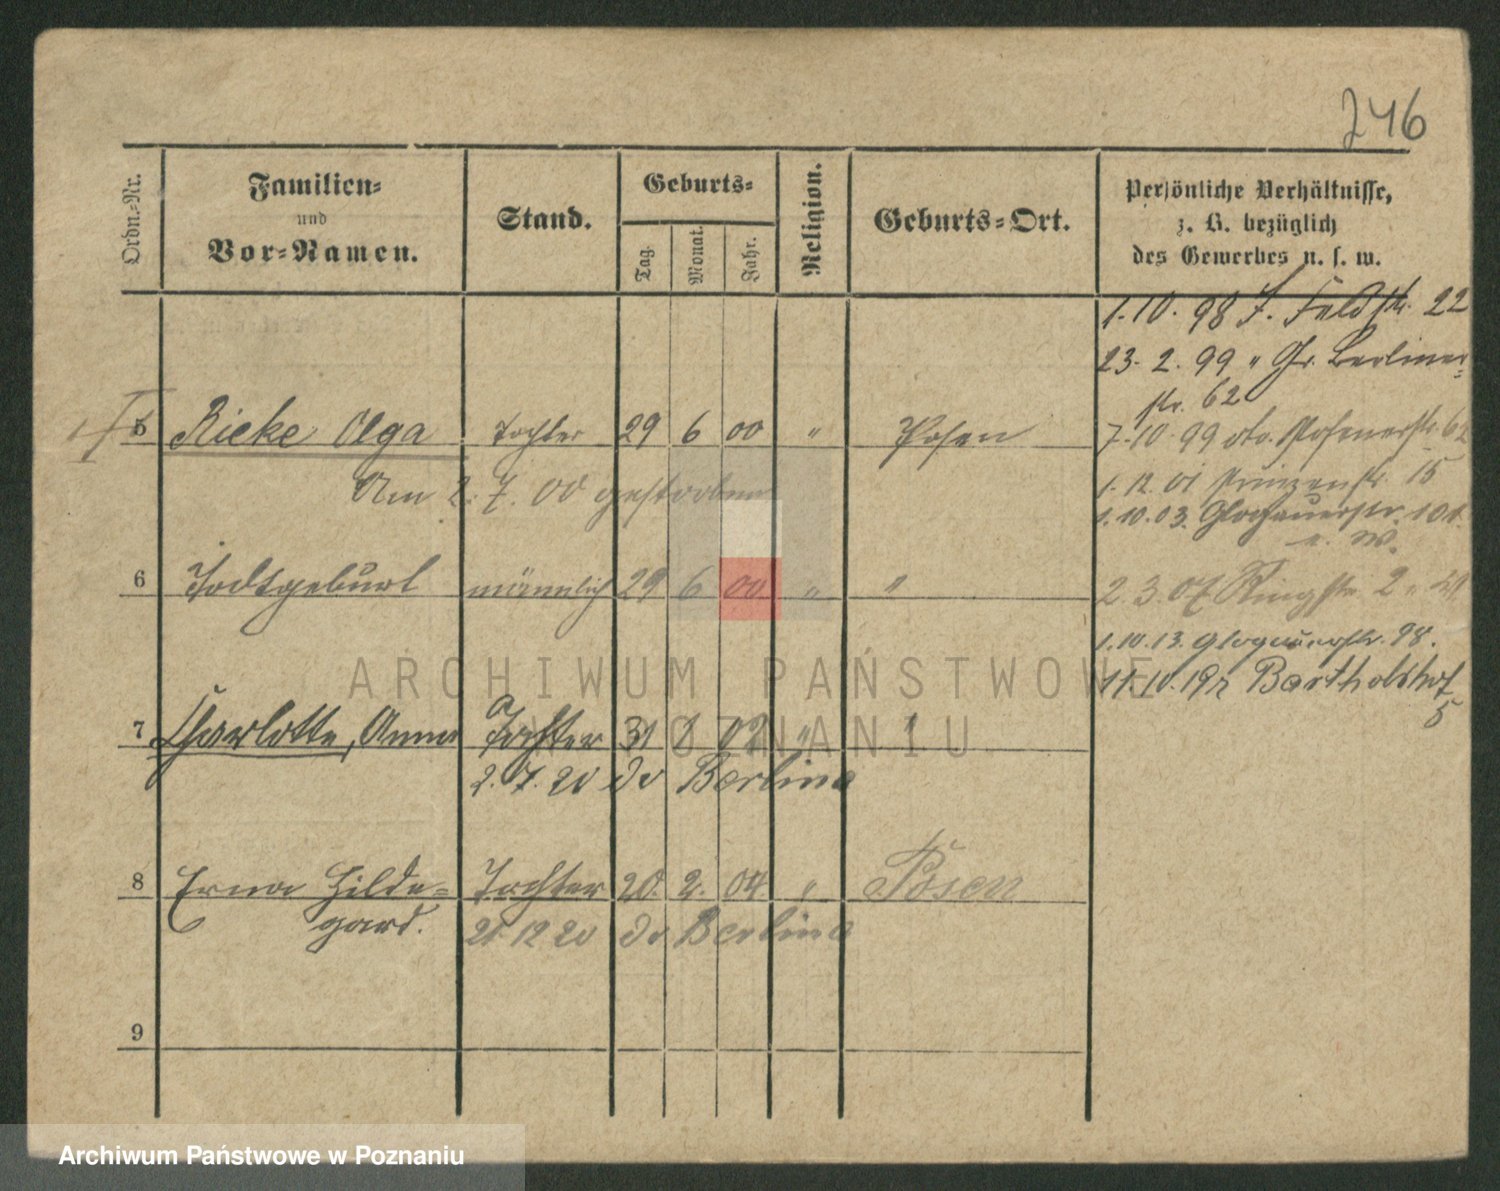 246
Ordn.-Nr.
Familien-
und
Vor-Namen.
Stand.
Geburts-
Tag.
Monat.
Jahr.
Religion.
Geburts-Ort.
Persönliche Verhältnisse,
z. B. bezüglich
des Gewerbes u. s. w.
1.10.98 J. Feldstr. 22
23.2.99 " Gr. Berliner-
str. 62
5 Rieke Olga Tochter 29 6 00 " Posen
7.10.99 Posenerstr. 62
Am 2.7.00 gestorben
1.12.01 Prinzenstr. 15
1.10.03. Glogauerstr. 101
6 Todtgeburt männlich 29 6 00 " "
2.3.07 Ringstr. 2
1.10.13. Glogauerstr. 98.
11.10.19 Bartholdshof
5
7 Charlotte, Anna Tochter 31 02 "
2.7.20 Berlin
8 Erna Hilde- Tochter 20. 2. 04 " Posen
gard. 21.12.20 Berlin
9
ARCHIWUM PAŃSTWOWE
W POZNANIU
Archiwum Państwowe w Poznaniu